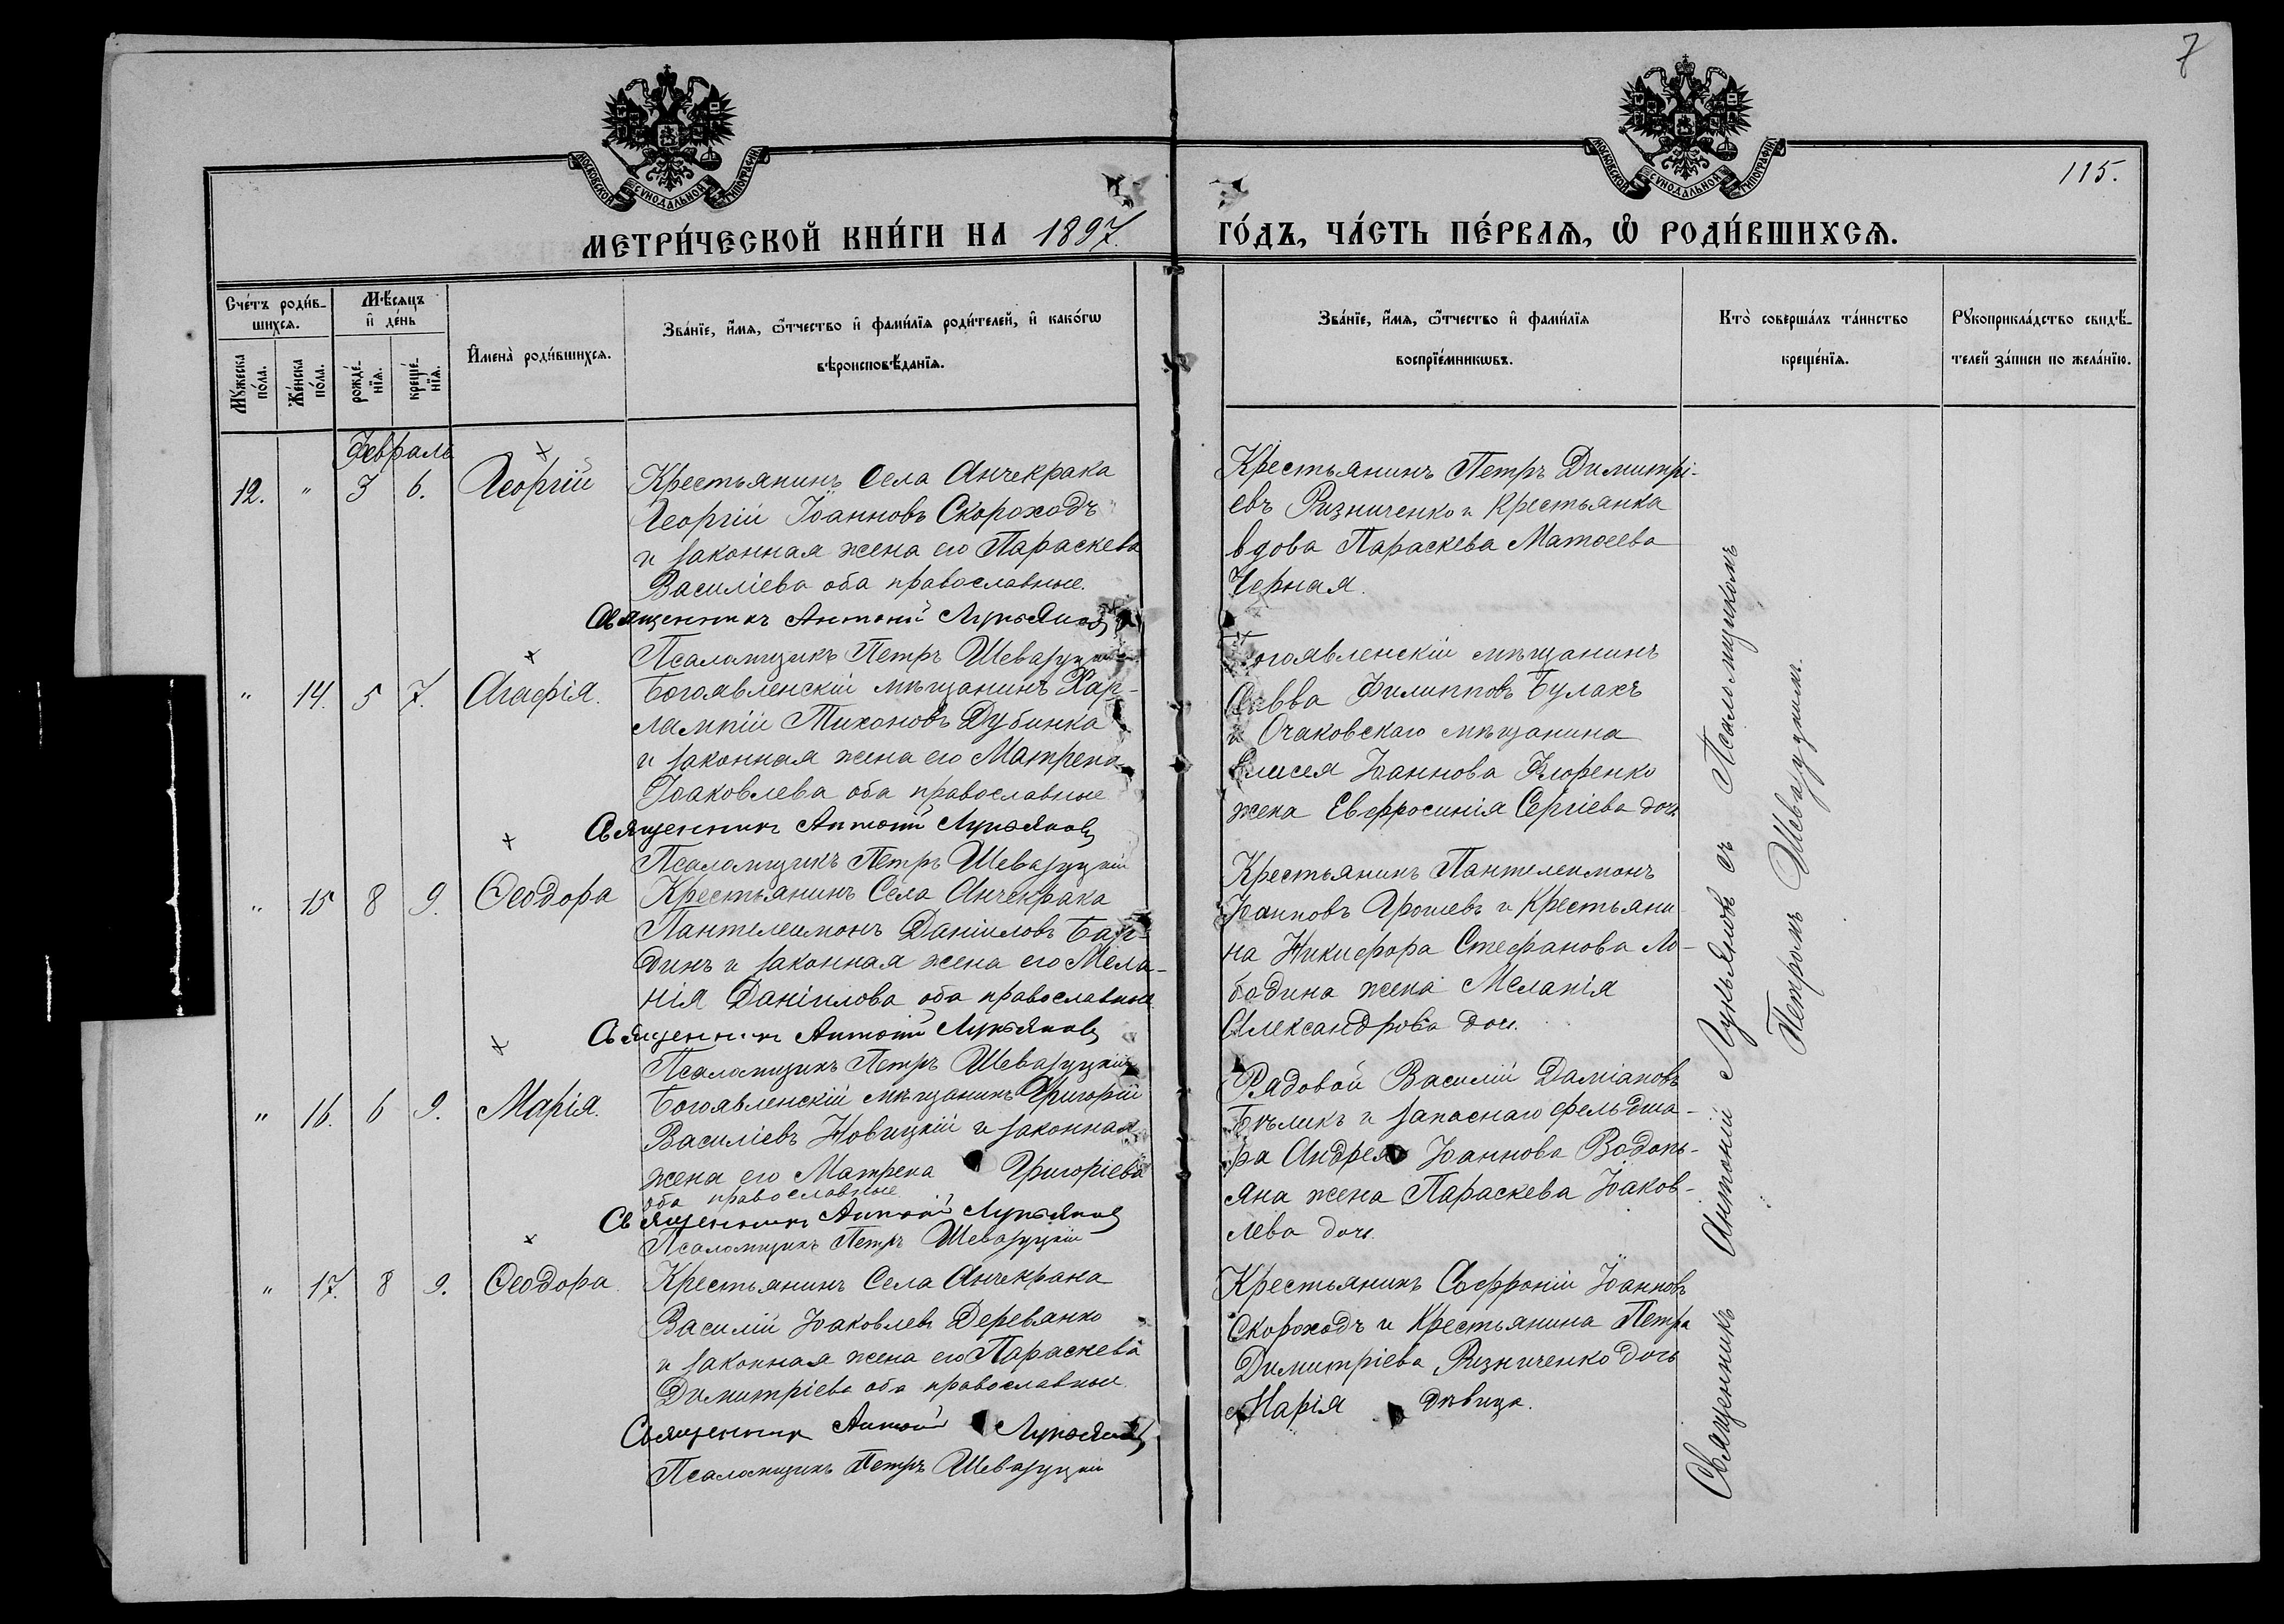 7
115.
МОСКОВСКОЙ СѴНОДАЛЬНОЙ ТИПОГРАФІИ
МОСКОВСКОЙ СѴНОДАЛЬНОЙ ТИПОГРАФІИ
МЕТРИ́ЧЕСКОЙ КНИ́ГИ НА 1897. ГО́ДЪ, ЧА́СТЬ ПЕ́РВАѦ, Ѽ РОДИ́ВШИХСѦ.
Сче́тъ роди́в-
шихсѧ.
Мѣ́сѧцъ
и҆ де́нь
Мꙋ́жеска
по́ла.
Же́нска
по́ла.
рожде́-
нїѧ.
креще́-
нїѧ.
И҆мена̀ роди́вшихсѧ.
Зва́нїе, и҆́мѧ, ѻ҆́тчество и҆ фами́лїѧ роди́телей, и҆ како́гѡ
вѣроисповѣ́данїѧ.
Зва́нїе, и҆́мѧ, ѻ҆́тчество и҆ фами́лїѧ
воспрїе́мникѡвъ.
Кто̀ соверша́лъ та́инство
креще́нїѧ.
Рꙋкоприкла́дство свидѣ́-
телей за́писи по жела́нїю.
Февраль
12. " 3 6. Георгій
Крестьянинъ Села Анчекрака
Георгій Іоанновъ Скороходъ
и законная жена его Параскева
Василіева оба православные.
Священникъ Антоній Лукьянов
Псаломщикъ Петръ Шевазуцкій
Крестьянинъ Петръ Димитрі-
евъ Ризниченко и Крестьянка
вдова Параскева Матѳеева
Черная.
" 14. 5 7. Агафія.
Богоявленскій мѣщанинъ Хар-
лампій Тихоновъ Дубинка
и законная жена его Матрена
Іоаковлева оба православные
Священник Антоній Лукьянов
Псаломщикъ Петръ Шевазуцкій
Богоявленскій мѣщанинъ
Савва Филипповъ Булахъ
и Очаковскаго мѣщанина
Елисея Іоаннова Флоренко
жена Евфросинія Сергіева доч.
" 15 8 9. Ѳеодора
Крестьянинъ Села Анчекрака
Пантелеимонъ Даніиловъ
и законная жена его Мела-
нія Даніилова оба православные
Священник Антоній Лукьянов
Псаломщикъ Петръ Шевазуцкій
Крестьянинъ Пантелеимонъ
Іоанновъ Грошевъ и Крестьяни-
на Никифора Стефанова Ло-
бодина жена Меланія
Александрова доч.
" 16. 6 9. Марія.
Богоявленскій мѣщанинъ Григорій
Василіевъ Новицкій и законная
жена его Матрена Григоріева
оба православные
Священник Антоній Лукьянов
Псаломщикъ Петръ Шевазуцкій
Рядовой Василій Даміановъ
Бѣликъ и запаснаго фельдша-
ра Андрея Іоаннова Водопь-
яна жена Параскева Іаков-
лева доч.
" 17. 8 9. Ѳеодора.
Крестьянинъ Села Анчекрака
Василій Іоаковлев Деревянко
и законная жена его Параскева
Димитріева оба православные.
Священник Антоній Лукьянов
Псаломщикъ Петръ Шевазуцкій
Крестьянинъ Софроній Іоанновъ
Скороходъ и Крестьянина Петра
Димитріева Ризниченко дочь
Марія дѣвица.
Священникъ Антоній Лукьяновъ съ Псаломщикомъ
Петромъ Шевазуцкимъ.